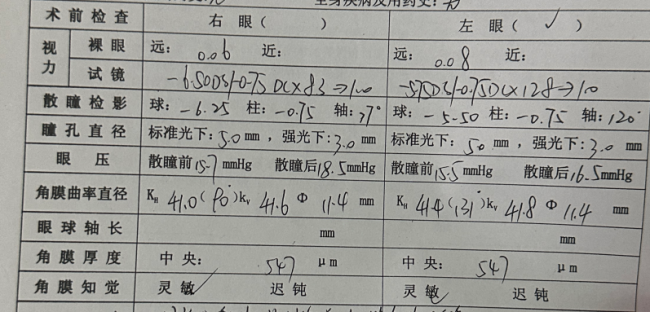 全身疾病及用药史: 无
术前检查 右眼( ) 左眼( ✓ )
视力 裸眼 远: 0.06 近: 远: 0.08 近:
试镜 -6.50DS/-0.75DC×83→1.0 -5.75DS/-0.75DC×128→1.0
散瞳检影 球: -6.25 柱: -0.75 轴: 77° 球: -5.50 柱: -0.75 轴: 120°
瞳孔直径 标准光下: 5.0 mm, 强光下: 3.0 mm 标准光下: 5.0 mm, 强光下: 3.0 mm
眼压 散瞳前 15.7 mmHg 散瞳后 18.5 mmHg 散瞳前 15.5 mmHg 散瞳后 16.5 mmHg
角膜曲率直径 KH 41.0 (90°) KV 41.6 Φ 11.4 mm KH 41.4 (131°) KV 41.8 Φ 11.4 mm
眼球轴长 mm mm
角膜厚度 中央: 547 μm 中央: 547 μm
角膜知觉 灵敏 ✓ 迟钝 灵敏 ✓ 迟钝